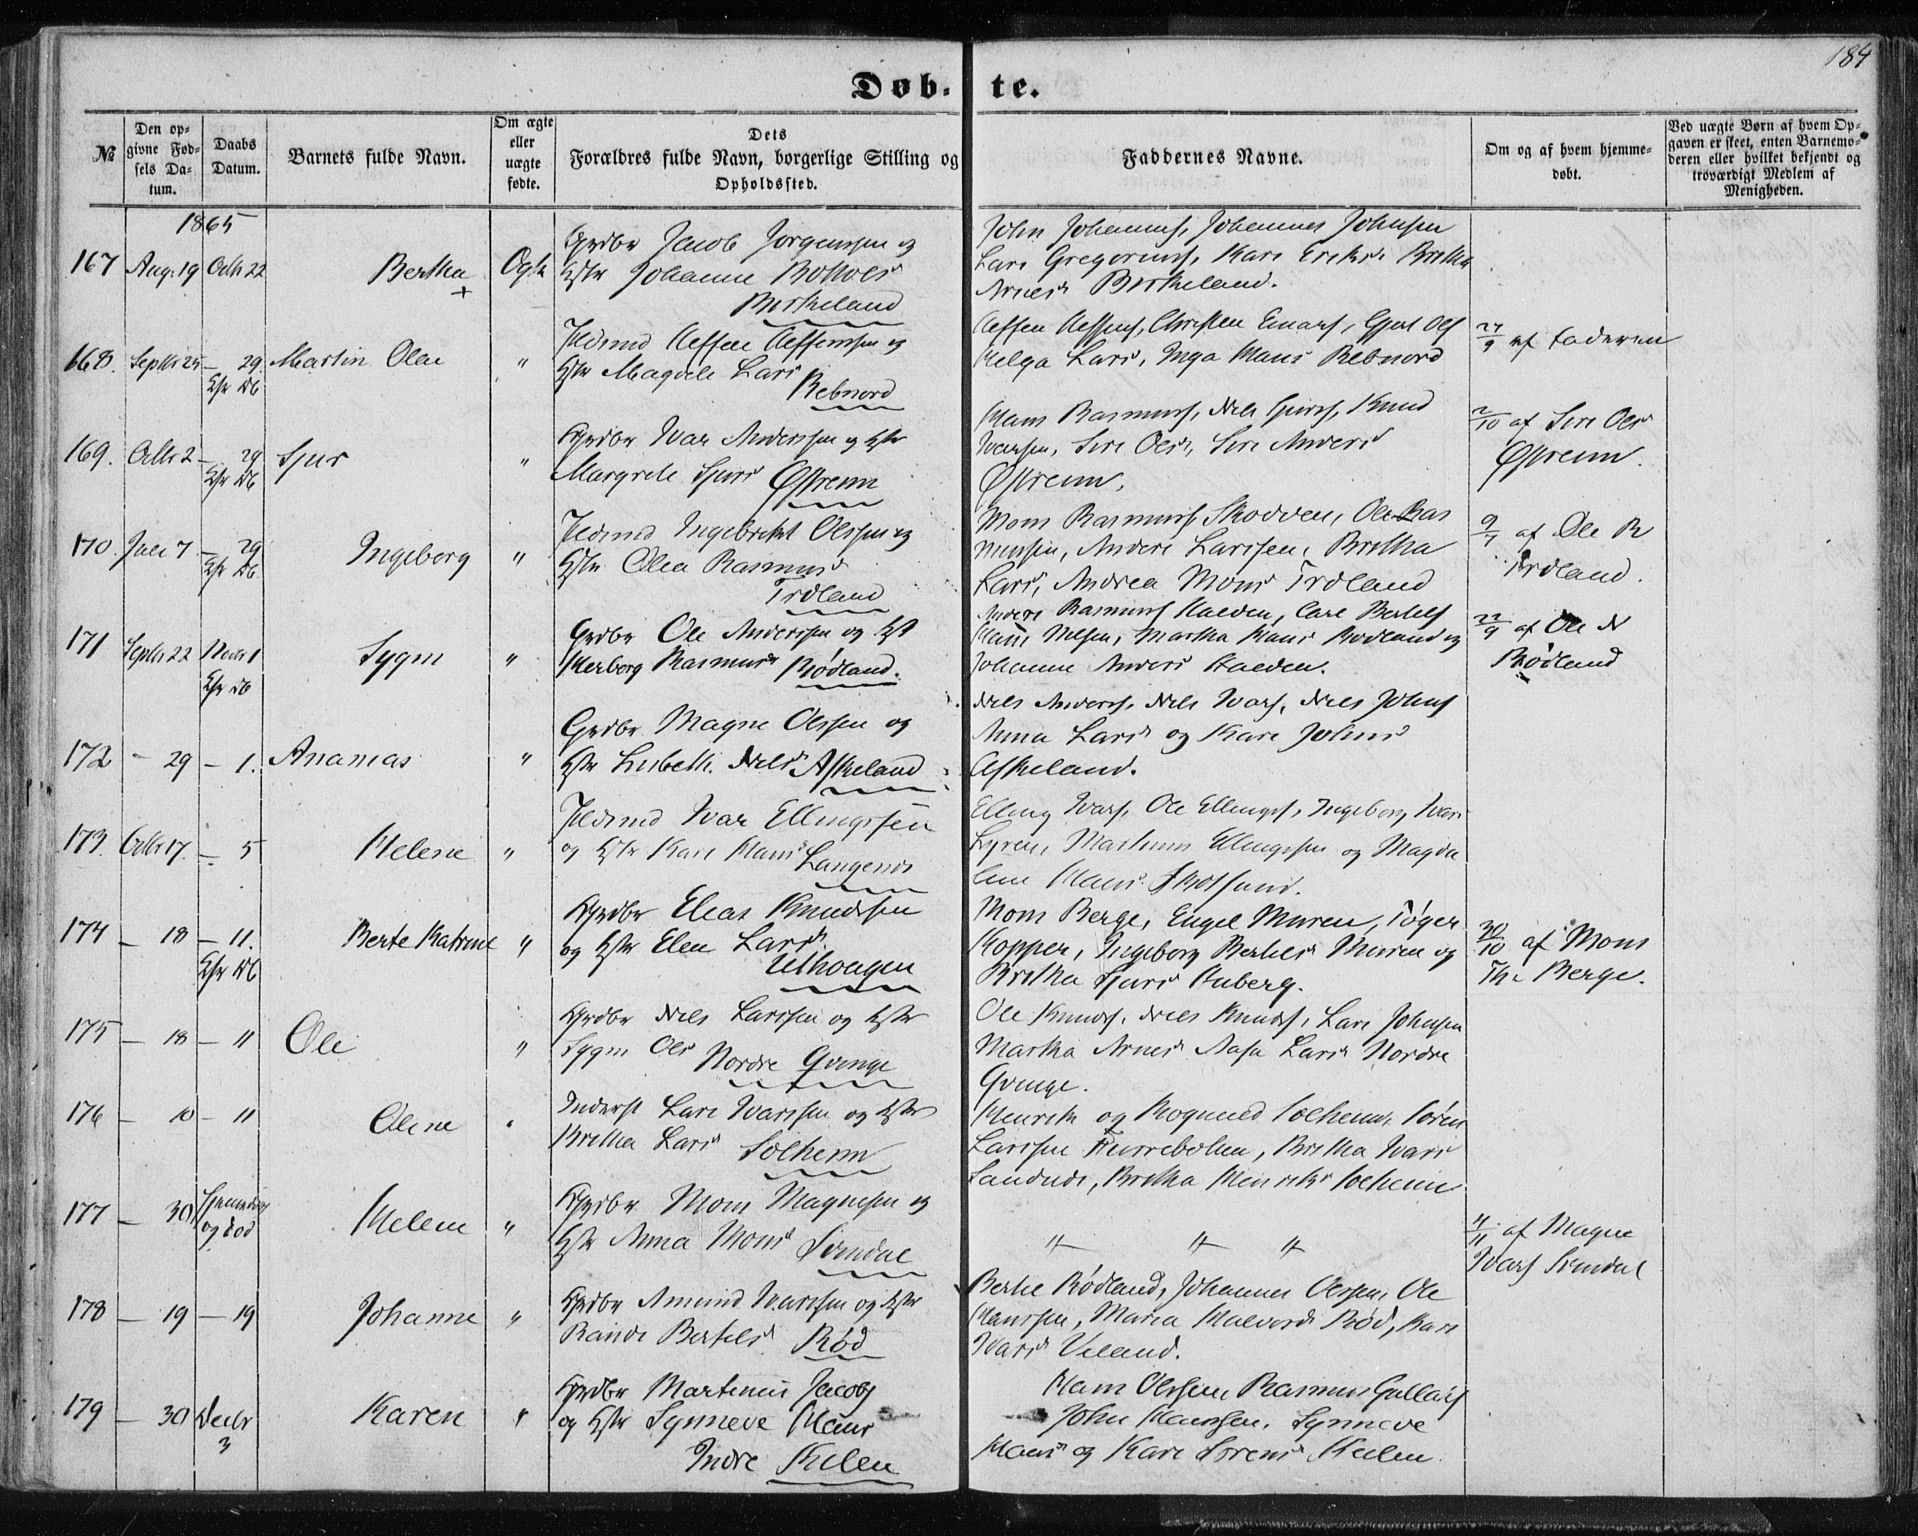 184
Døb-te.
№
Den opgivne Fødsels Datum.
Daabs Datum.
Barnets fulde Navn.
Om ægte eller uægte fødte.
Dets Forældres fulde Navn, borgerlige Stilling og Opholdssted.
Faddernes Navne.
Om og af hvem hjemmedøbt.
Ved uægte Børn af hvem Opgaven er skeet, enten Barnemoderen eller hvilket bekjendt og troværdigt Medlem af Menigheden.
1865
167 Aug. 19 Octbr 22 Bertha Ægte
Grdbr Jacob Jørgenssen og
Hstr Johanne
Birkeland
John Johanness, Johannes Johnsen
Lars Gregoriuss, Kari Eriks, Britha
Arnesd Birkeland.
168. Septbr 25 – 29 Martin Olai "
Hstr Magdele Lars
Rebnord
Helga Lars, Inga Hans Rebnord
af Faderen
169. Octbr 2 – 29 Sjur "
Grdbr Ivar Anderssen og Hstr
Margrete Sjurs Østrem
Hans Rasmuss, Nils Sjurss, Knud
Ivarsen, Siri Ols, Siri Anders
Østrem.
2/10 af Siri Ols
Østrem.
170. Juli 7 – 29 Ingeborg "
Ingebrikt Olssen og
Hstr Olea Rasmusd
Trøland
Mons Rasmuss Skodven, Ole Ras
mussen, Anders Larssen, Britha
Lars, Andrea Mons Trøland
9/7 af Ole R
Trøland.
171 Septbr 22 Novbr 1 Sygni "
Grdbr Ole Anderssen og Hst
Herborg Rasmusd Rødland.
Anders Rasmuss Halden, Lars Bertels
Hans Nilsen, Martha Hans Rødland og
Johanne Anders Halden.
22/9 af Ole N
Rødland
172 – 29 – 1. Ananias "
Grdbr Magne Olssen og
Hstr Lisbeth Nilsd Askeland
Nils Anderss, Nils Ivars, Nils Johns
Anna Larsd og Kari Johns
Askeland.
173. Octbr 17. – 5 Helene "
Ivar Ellingssen
og Hstr Kari Hans Langenes
Elling Ivars, Ole Ellingss, Ingeborg Ivars
Lyren, Martinus Ellingssen og Magda
lene Hans
174 – 18 – 11. Berte Katrine "
Grdbr Elias Knudssen
og Hstr Elen Larsd
Uthougen
Mons Berge, Engel Muren, Tøger
Kopper, Ingeborg Bertels Muren og
Britha Sjurs
30/10 af Mons
Th. Berge.
175 – 18 – 11 Ole "
Grdbr Nils Larssen og Hstr
Sygni Ols Nordre Qvinge
Ole Knuds, Nils Knuds, Lars Johnsen
Martha Arnes Aasa Lars Nordre
Qvinge.
176 – 10 – 11 Oline
Inderst Lars Ivarssen og Hstr
Britha Larsd Solheim
Henrik og Rognald Solheim, Sören
Larssen Furrebolten, Britha Ivars
Sandnes, Britha Henriks Solheim
177 – 30 Hjemdøbt og død Helene "
Grdbr Mons Magnesen og
Hstr Anna Mons Sördal
" " "
4/11 af Magne
Ivars Sördal
178 – 19 – 19 Johanne "
Grdbr Amund Ivarssen og Hstr
Randi Bertelsd Rød
Bertel Rødland, Johannes Olssen, Ole
Hanssen, Maria Halvords Rød, Kari
Ivars Veland.
179 – 30 Decbr 3 Karen "
Grdbr Martinus Jacobs
og Hstr Synneve Hans
Indre Kilen
Hans Olssen, Rasmus Gullaks
John Hanssen, Synneve
Hans og Kari Sörens Kilen